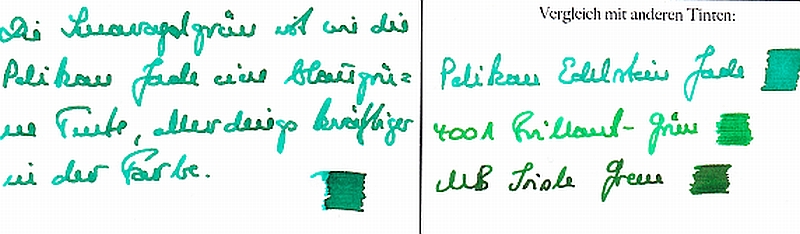 Die Smaragdgrün ist wie die
Pelikan Jade eine blaugrü=
ne Tinte, allerdings kräftiger
in der Farbe.
Vergleich mit anderen Tinten:
Pelikan Edelstein Jade
4001 Brillant-Grün
MB Irish Green